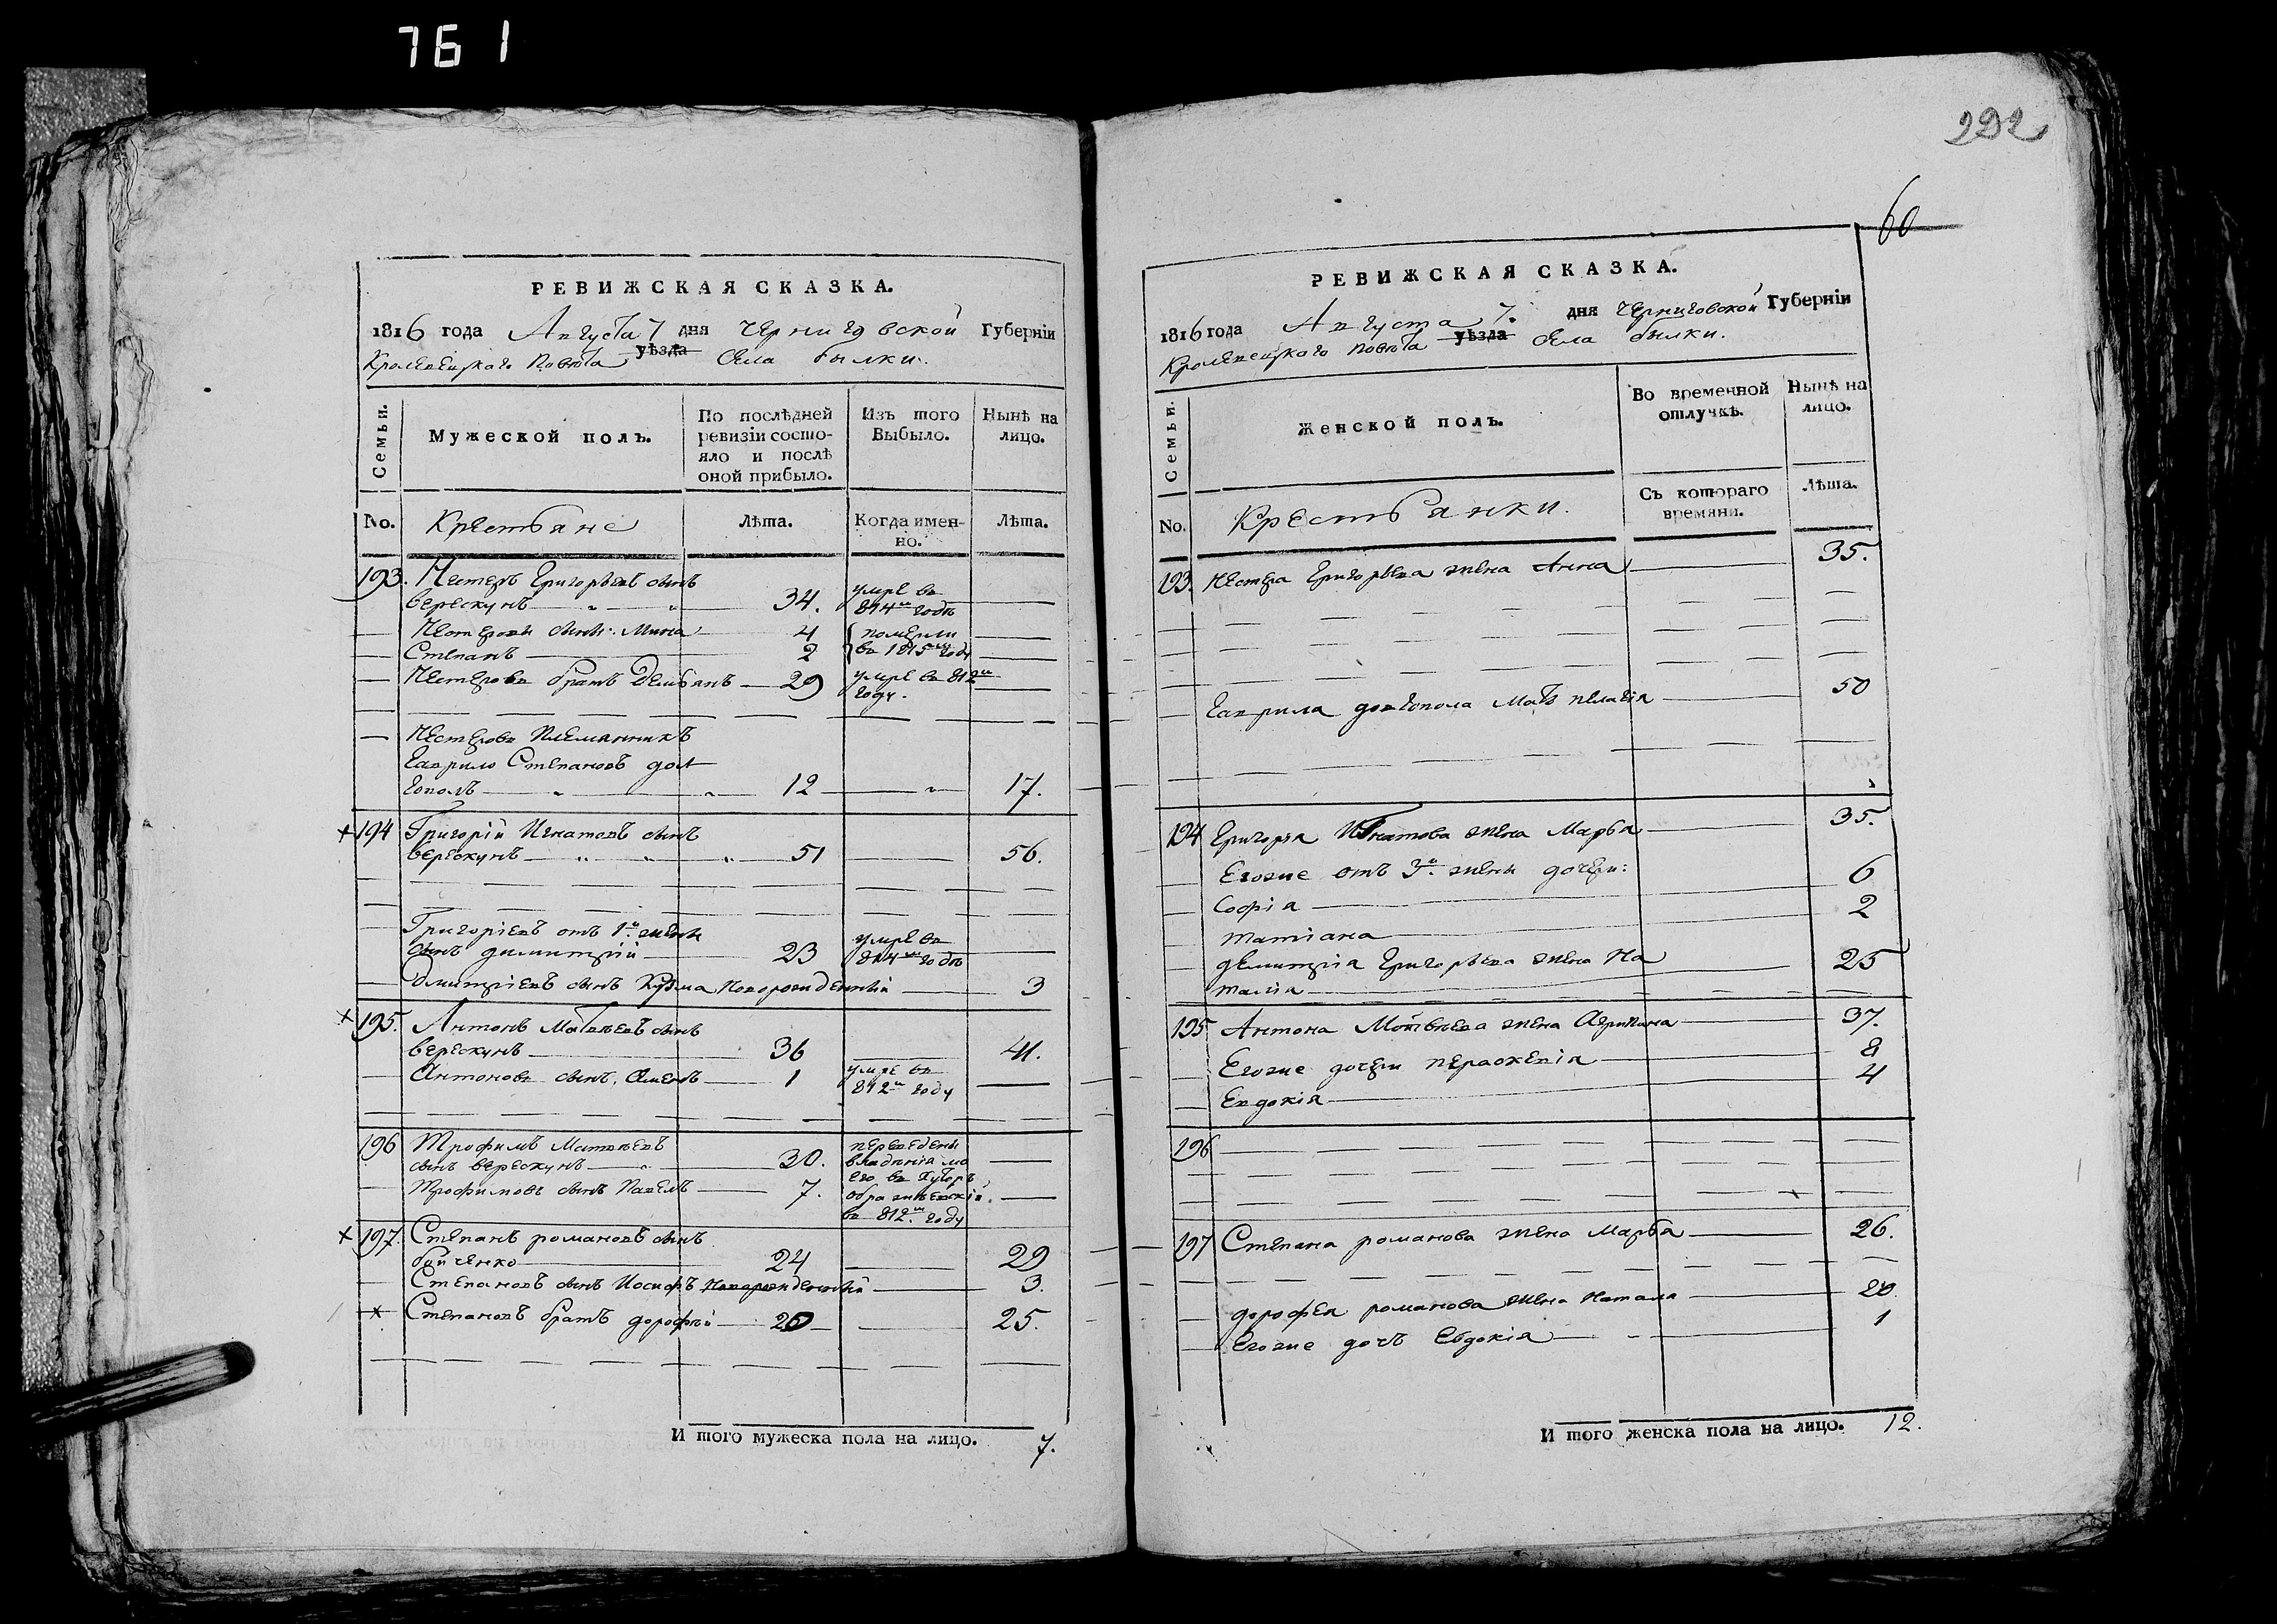 761
РЕВИЖСКАЯ СКАЗКА.
1816 года Августа 7 дня Черниговской Губерніи
Кролевецкаго Повѣта уѣзда Села Былки.
Семьи.
Мужеской полъ.
По послѣдней ревизіи состо-
яло и послѣ оной прибыло.
Изъ того Выбыло.
Нынѣ на лицо.
No.
Крестьяне
Лѣта.
Когда имен-
но.
Лѣта.
193. Нестеръ Григорьевъ сынъ
Верескунъ 34. умре въ 814м годѣ
Нестеровы сыны: Мина 4 померли
Степанъ 2 въ 1815м году
Нестеровъ братъ Демьянъ 29 умре въ 812м
году.
Нестеровъ Племянникъ
Гаврило Степановъ дол
гополъ 12 17.
194 Григорій Игнатовъ сынъ
Верескунъ 51 56.
Григоріевъ отъ 1й жены
сынъ димитрій 23 умре въ 814м годѣ
Дмитріевъ сынъ Кузма Новорожденный 3
195. Антонъ Матвѣевъ сынъ
Верескунъ 36 41.
Антоновъ сынъ 1 умре въ
812м году
196 Трофимъ Матвѣевъ
сынъ Верескунъ 30. переведены
владѣнія мо
Трофимовъ сынъ Павелъ 7. его въ Хуторъ
въ 812м году
197. Степанъ романовъ сынъ
бойченко 24 29
Степановъ сынъ Иосифъ Новорожденный 3.
Степановъ братъ дорофѣй 20 25.
И того мужеска пола на лицо. 7.
292
60
РЕВИЖСКАЯ СКАЗКА.
1816 года Августа 7. дня Черниговской Губерніи
Кролевецкаго Повѣта уѣзда Села былки.
Семьи.
Женской полъ.
Во временной отлучкѣ.
Нынѣ на лицо.
No.
Крестьянки.
Съ котораго времяни.
Лѣта.
193. Нестера Григорьева жена Анна 35.
Гаврила довгопола Мать пелагія 50
194 Григорія Игнатова жена Марѳа 35.
Егоже отъ 3й жены дочери:
Софія 6
татіана 2
демитрія Григорьева жена На
талія 25
195 Антона Мотвѣева жена Агрипина 37.
Егоже дочери параскевія 8
Евдокія 4
196
197 Степана романова жена Марѳа 26.
дорофея романова жена Наталя 20.
Егоже дочь Евдокія 1
И того женска пола на лицо. 12.